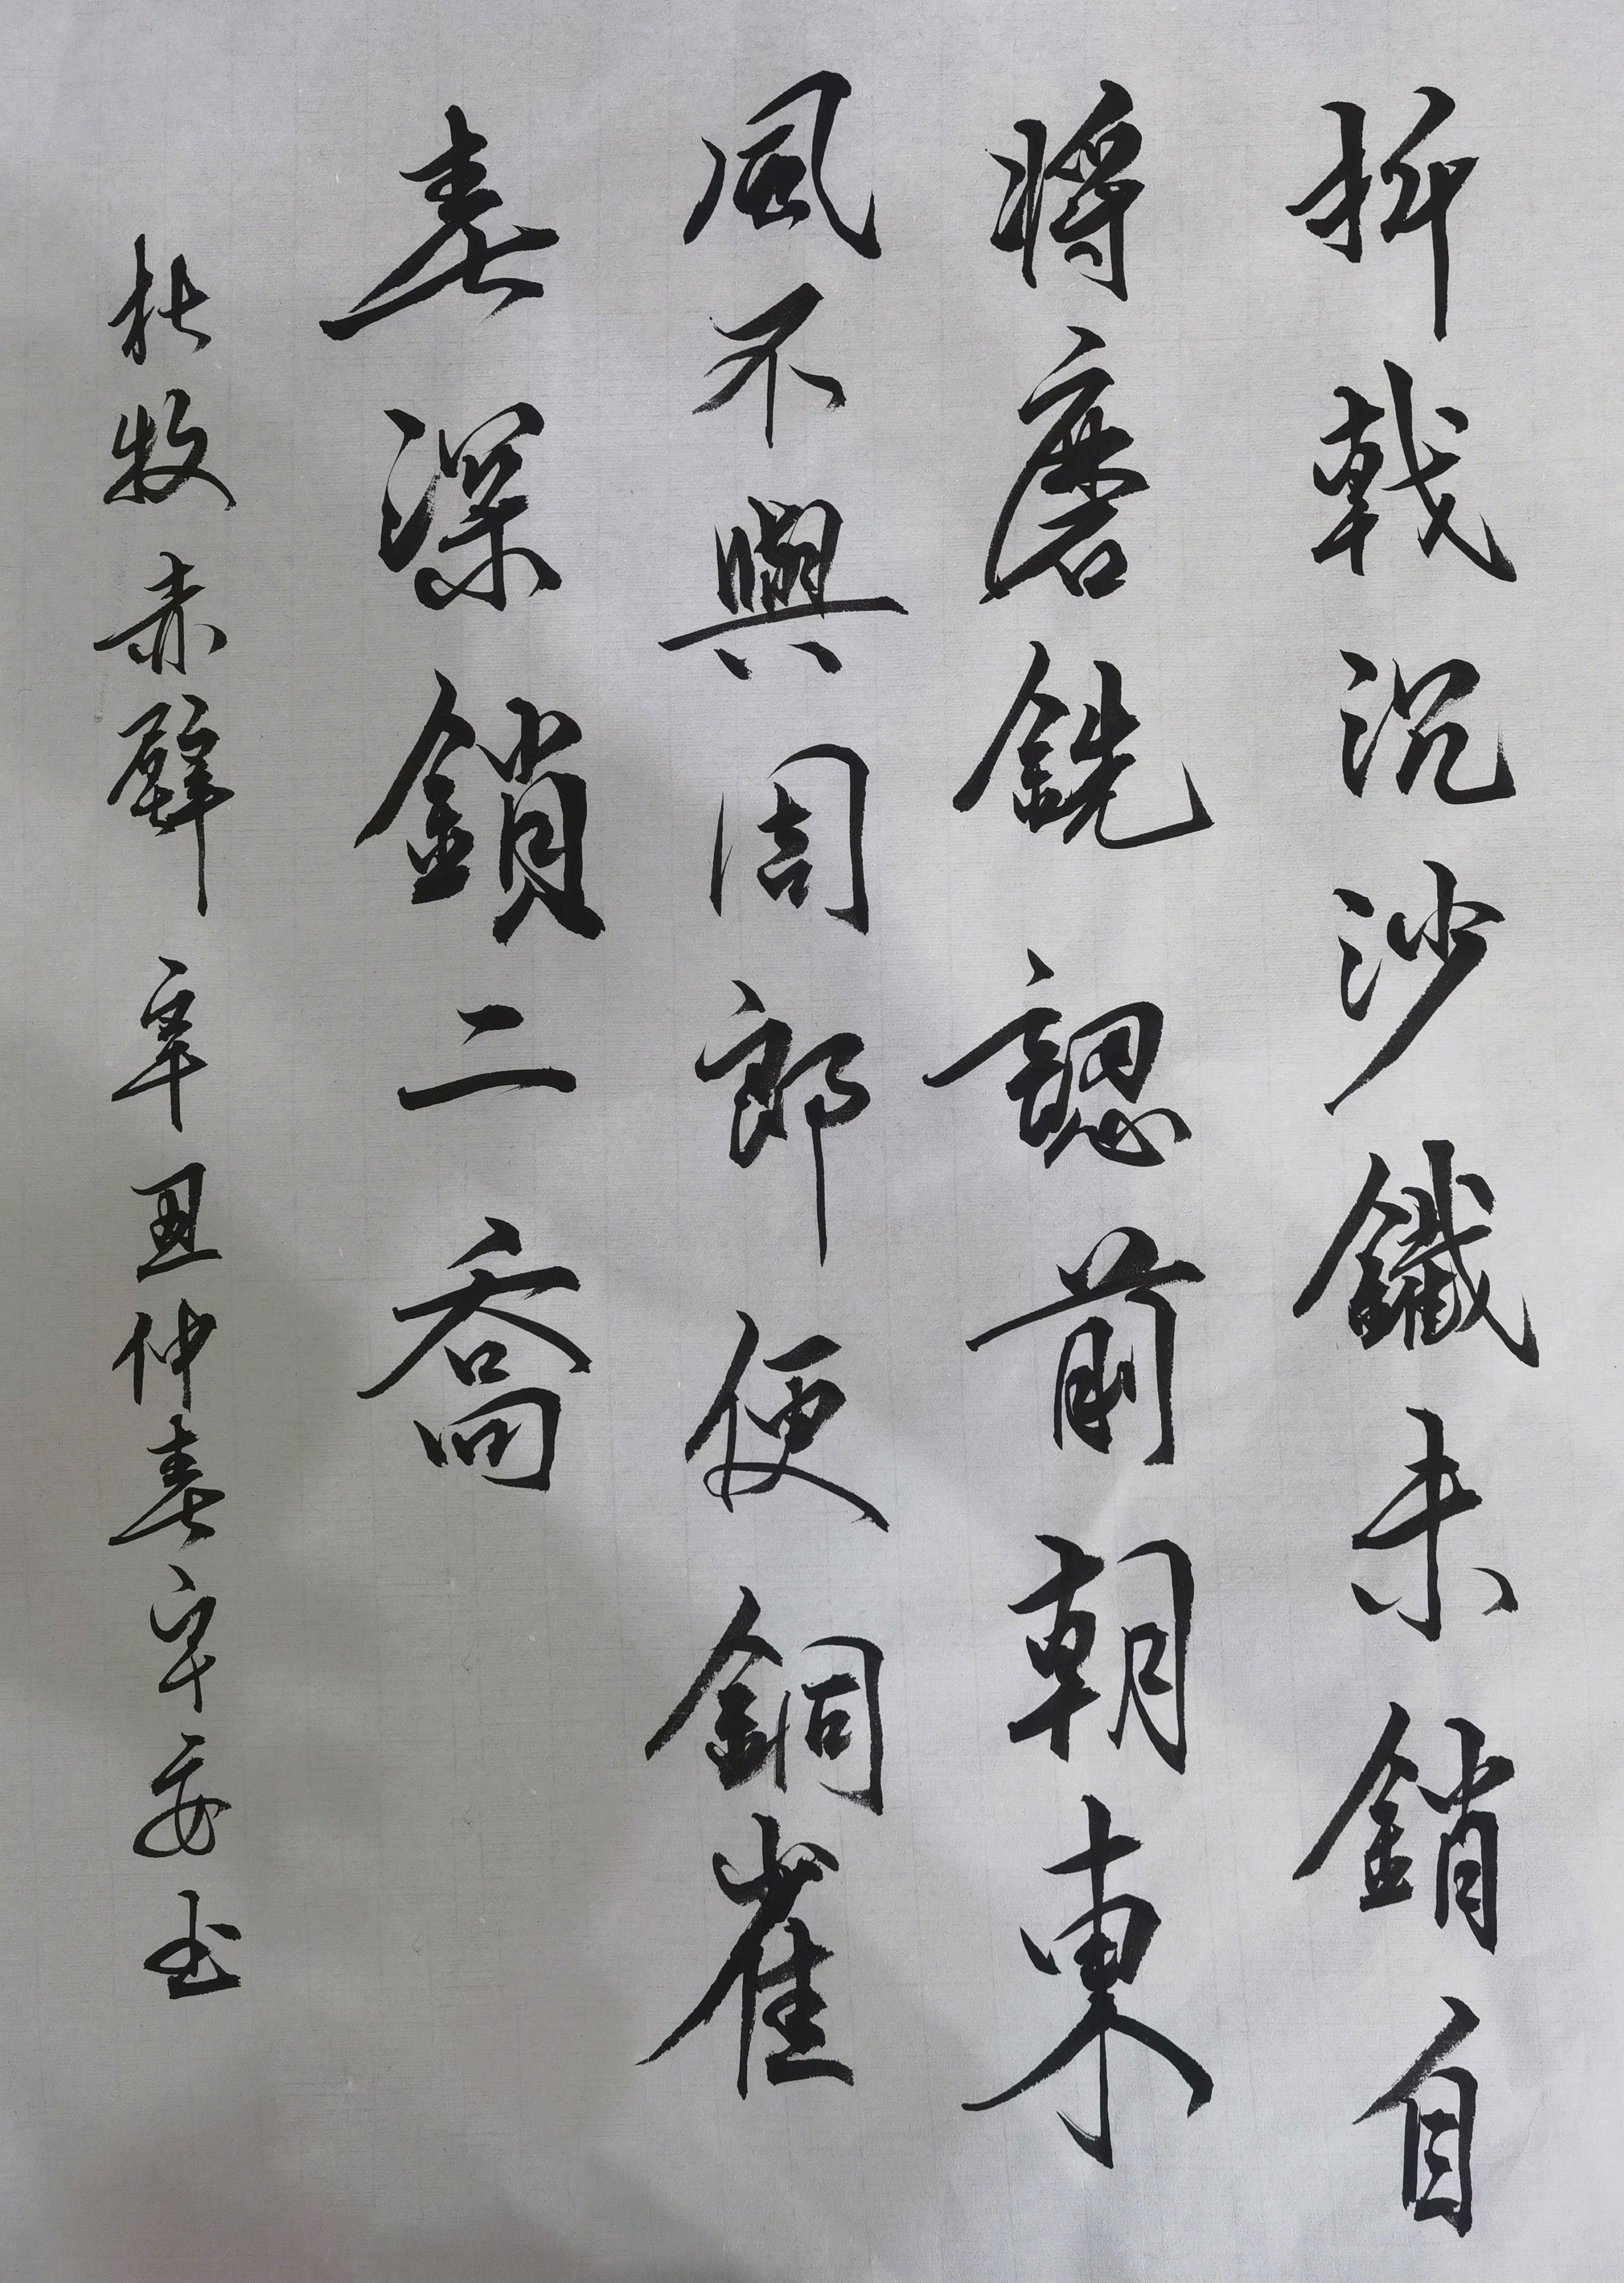 折戟沉沙鐵未銷自
將磨銑認前朝東
風不與周郎便銅雀
春深鎖二喬
杜牧赤壁辛丑仲春宇安书